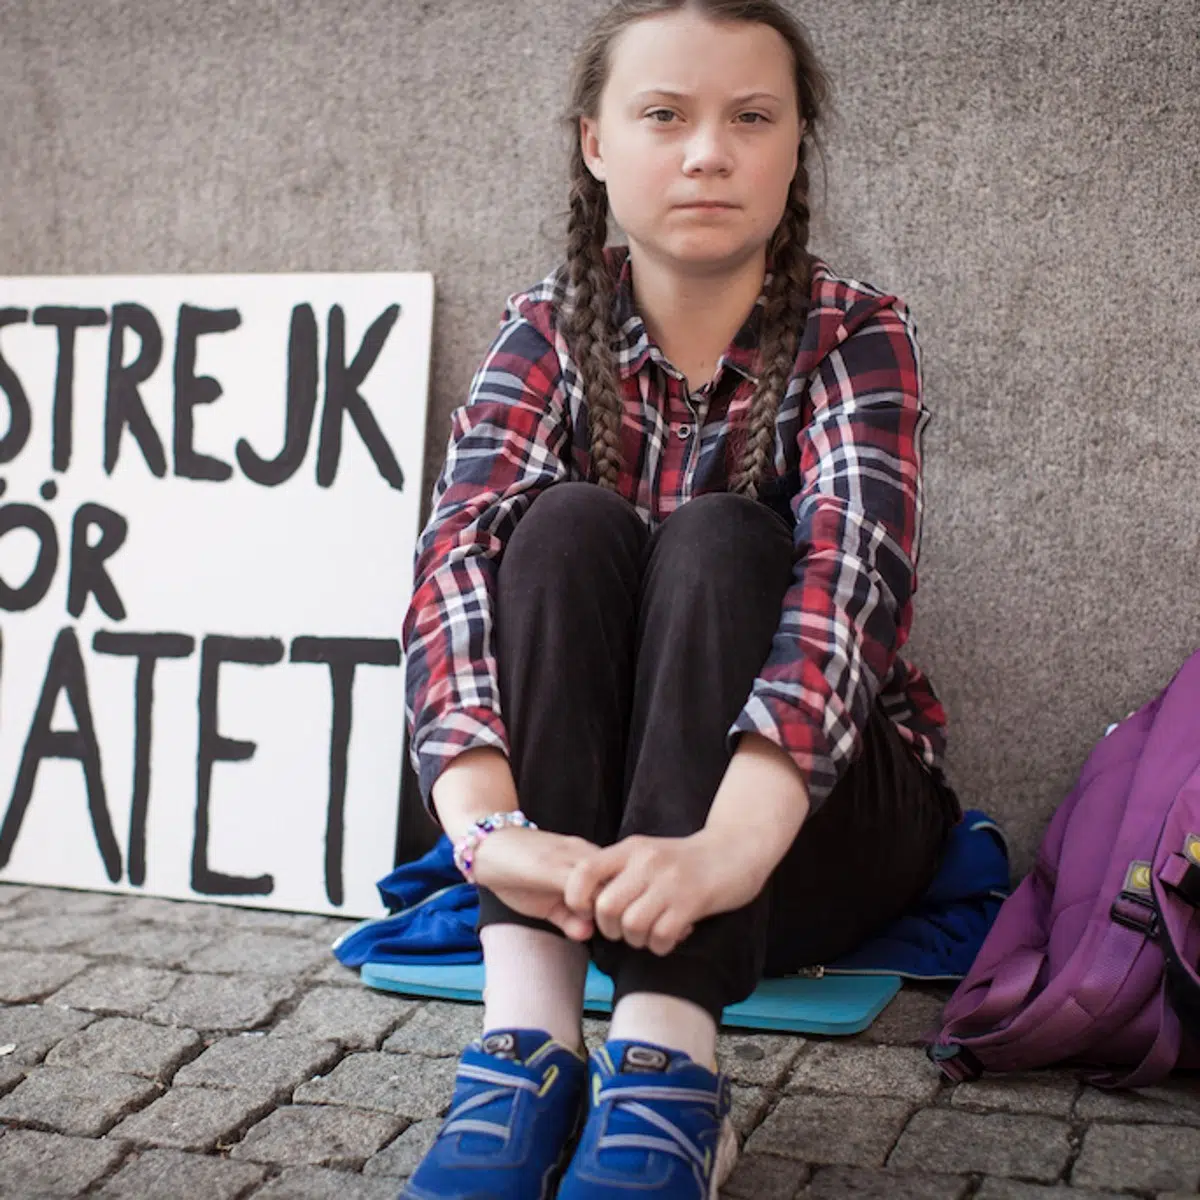 STREJK
ÖR
ATET